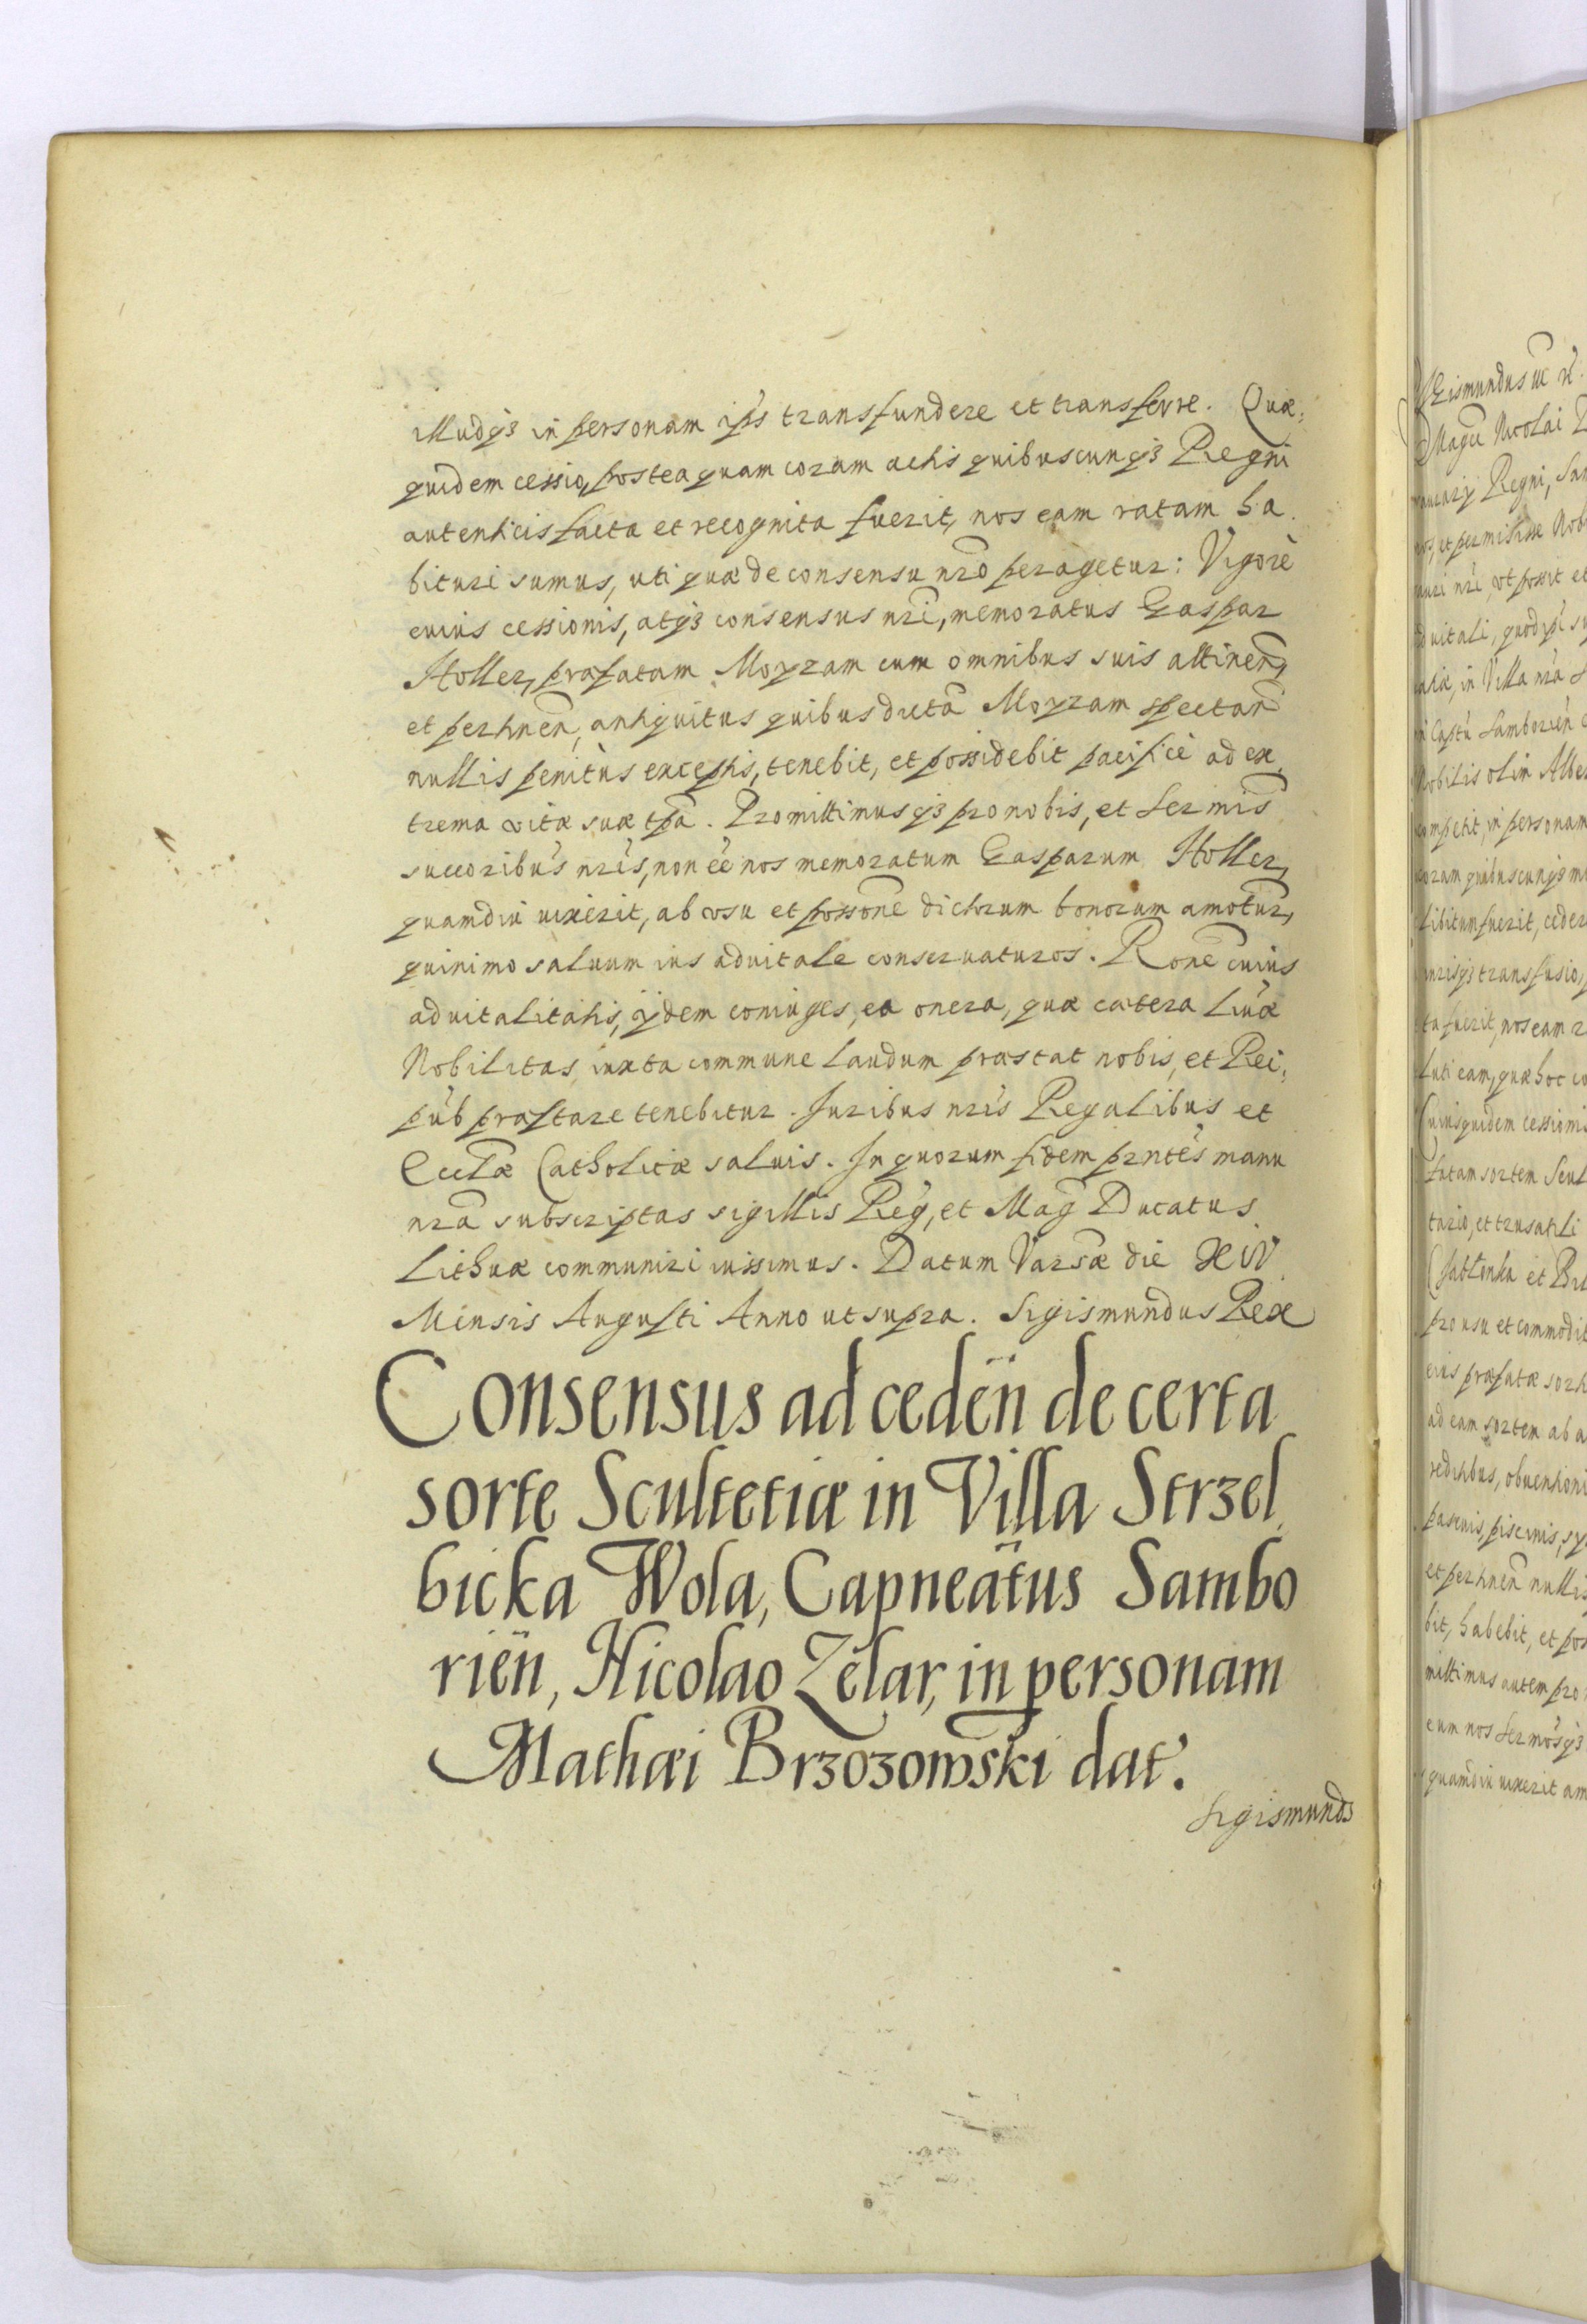 illudq́3 in personam ip̃s transfundere et transferre. Quæ,
quidem cessio, posteaquam coram actis quibuscunq́3 Regni
autenticis facta et recognita fuerit, nos eam ratam ha.
bituri sumus, uti quæ de consensu nr̃o peragetur: Vigore
cuius cessionis, atq́3 consensus nr̃i, memoratus Gaspar
Holler, præfatam Moyzam cum omnibus suis attineñ,
et pertineñ, antiquitus quibus dictã Moyzam spectañ
nullis penitùs exceptis, tenebit, et possidebit pacificè ad ex,
trema vitæ suæ tp̃a. Promittimusq́3 pro nobis, et Sermis̃
succoribus̃ nr̃is, non ẽe nos memoratum Gasparum Holler,
quamdiu vixerit, ab vsu et possõne dictorum bonorum amotur̃,
quinimo saluum ius aduitale conseruaturos. Rõne cuius
aduitalitatis, ijdem coniuges, ea onera, quæ cætera Liuæ
Nobilitas, iuxta commune Laudum præstat nobis, et Rei,
pub̃ præstare tenebitur. Juribus nr̃is Regalibus et
Eccl̃æ Catholicæ saluis. In quorum fidem prnte̾s manu
nr̃a subscriptas sigillis Reg̃, et Mag̃ Ducatus
Lithuæ communiri iussimus. Datum Varsæ̃ die XIV
Mensis Augusti Anno ut supra. Sigismundus Rex
Consensus ad cedeñ de certa
sorte Scultetiæ in Villa Strzel,
bicka Wola, Capneãtus Sambo
rieñ, Nicolao Zelar, in personam
Mathæi Brzozowski dat̾.
Sigismund3
Sigismundus III R̃.
Magci Nicolai
Regni, San
et permisisse Nob
nr̃i, vt possit et
uitali, quod ip̃i su
in Villa nr̃a S
Capt̃u Samborieñ
Nobilis olim Alber
competit, in personam
coram quibuscunq́3
libitum fuerit, ceder
transfusio,
fuerit, nos eam r
Luti eam, quæ hoc co
Cuiusquidem cessionis
fatam sortem Scul
et
et
pro usu et commodit
eius præfatæ sorti
ad eam sortem ab a
reditibus, obuentioni
piscinis, sy
et pertineñ nullis
bit, habebit, et pos
mittimus autem pro
eum nos Sermosq́3
quamdiu vixerit am